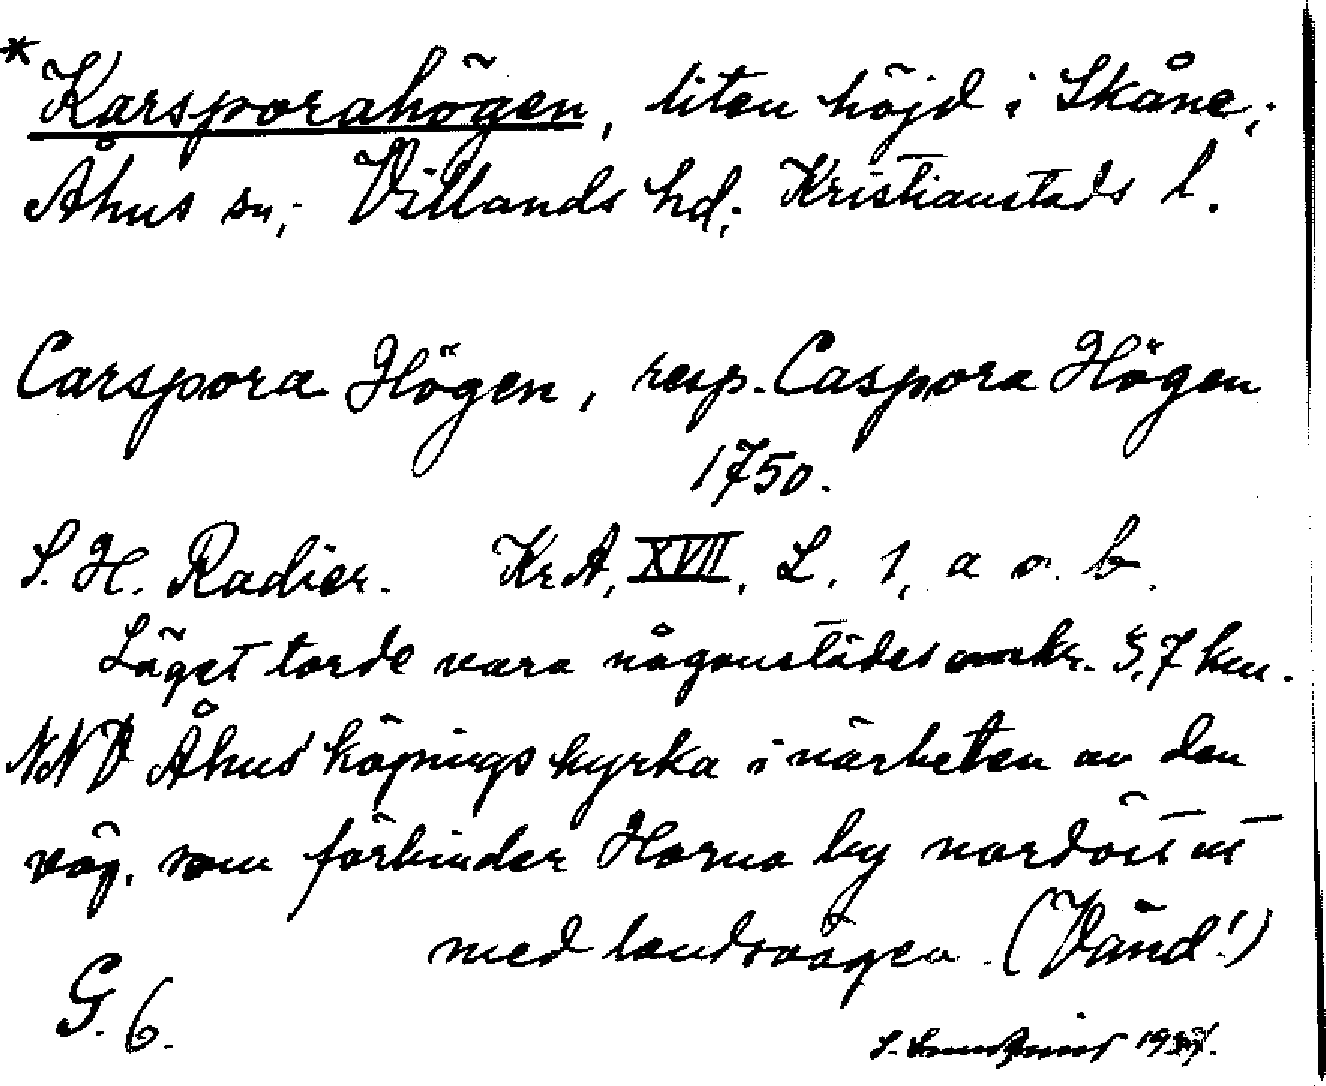 * Karsporahögen, liten höjd i Skåne;
Åhus sn; Villands hd; Kristianstads l.
Carspora Högen, resp. Caspora Högen
1750.
S. H. Radier. Kr.A, XVII, L. 1, a o. b.
Läget torde vara någonstädes omkr. 5,7 km.
NNV Åhus köpings kyrka i närheten av den
väg, som förbinder Horna by nordöst ut
med landsvägen. (Vänd!)
G. 6.
1937.